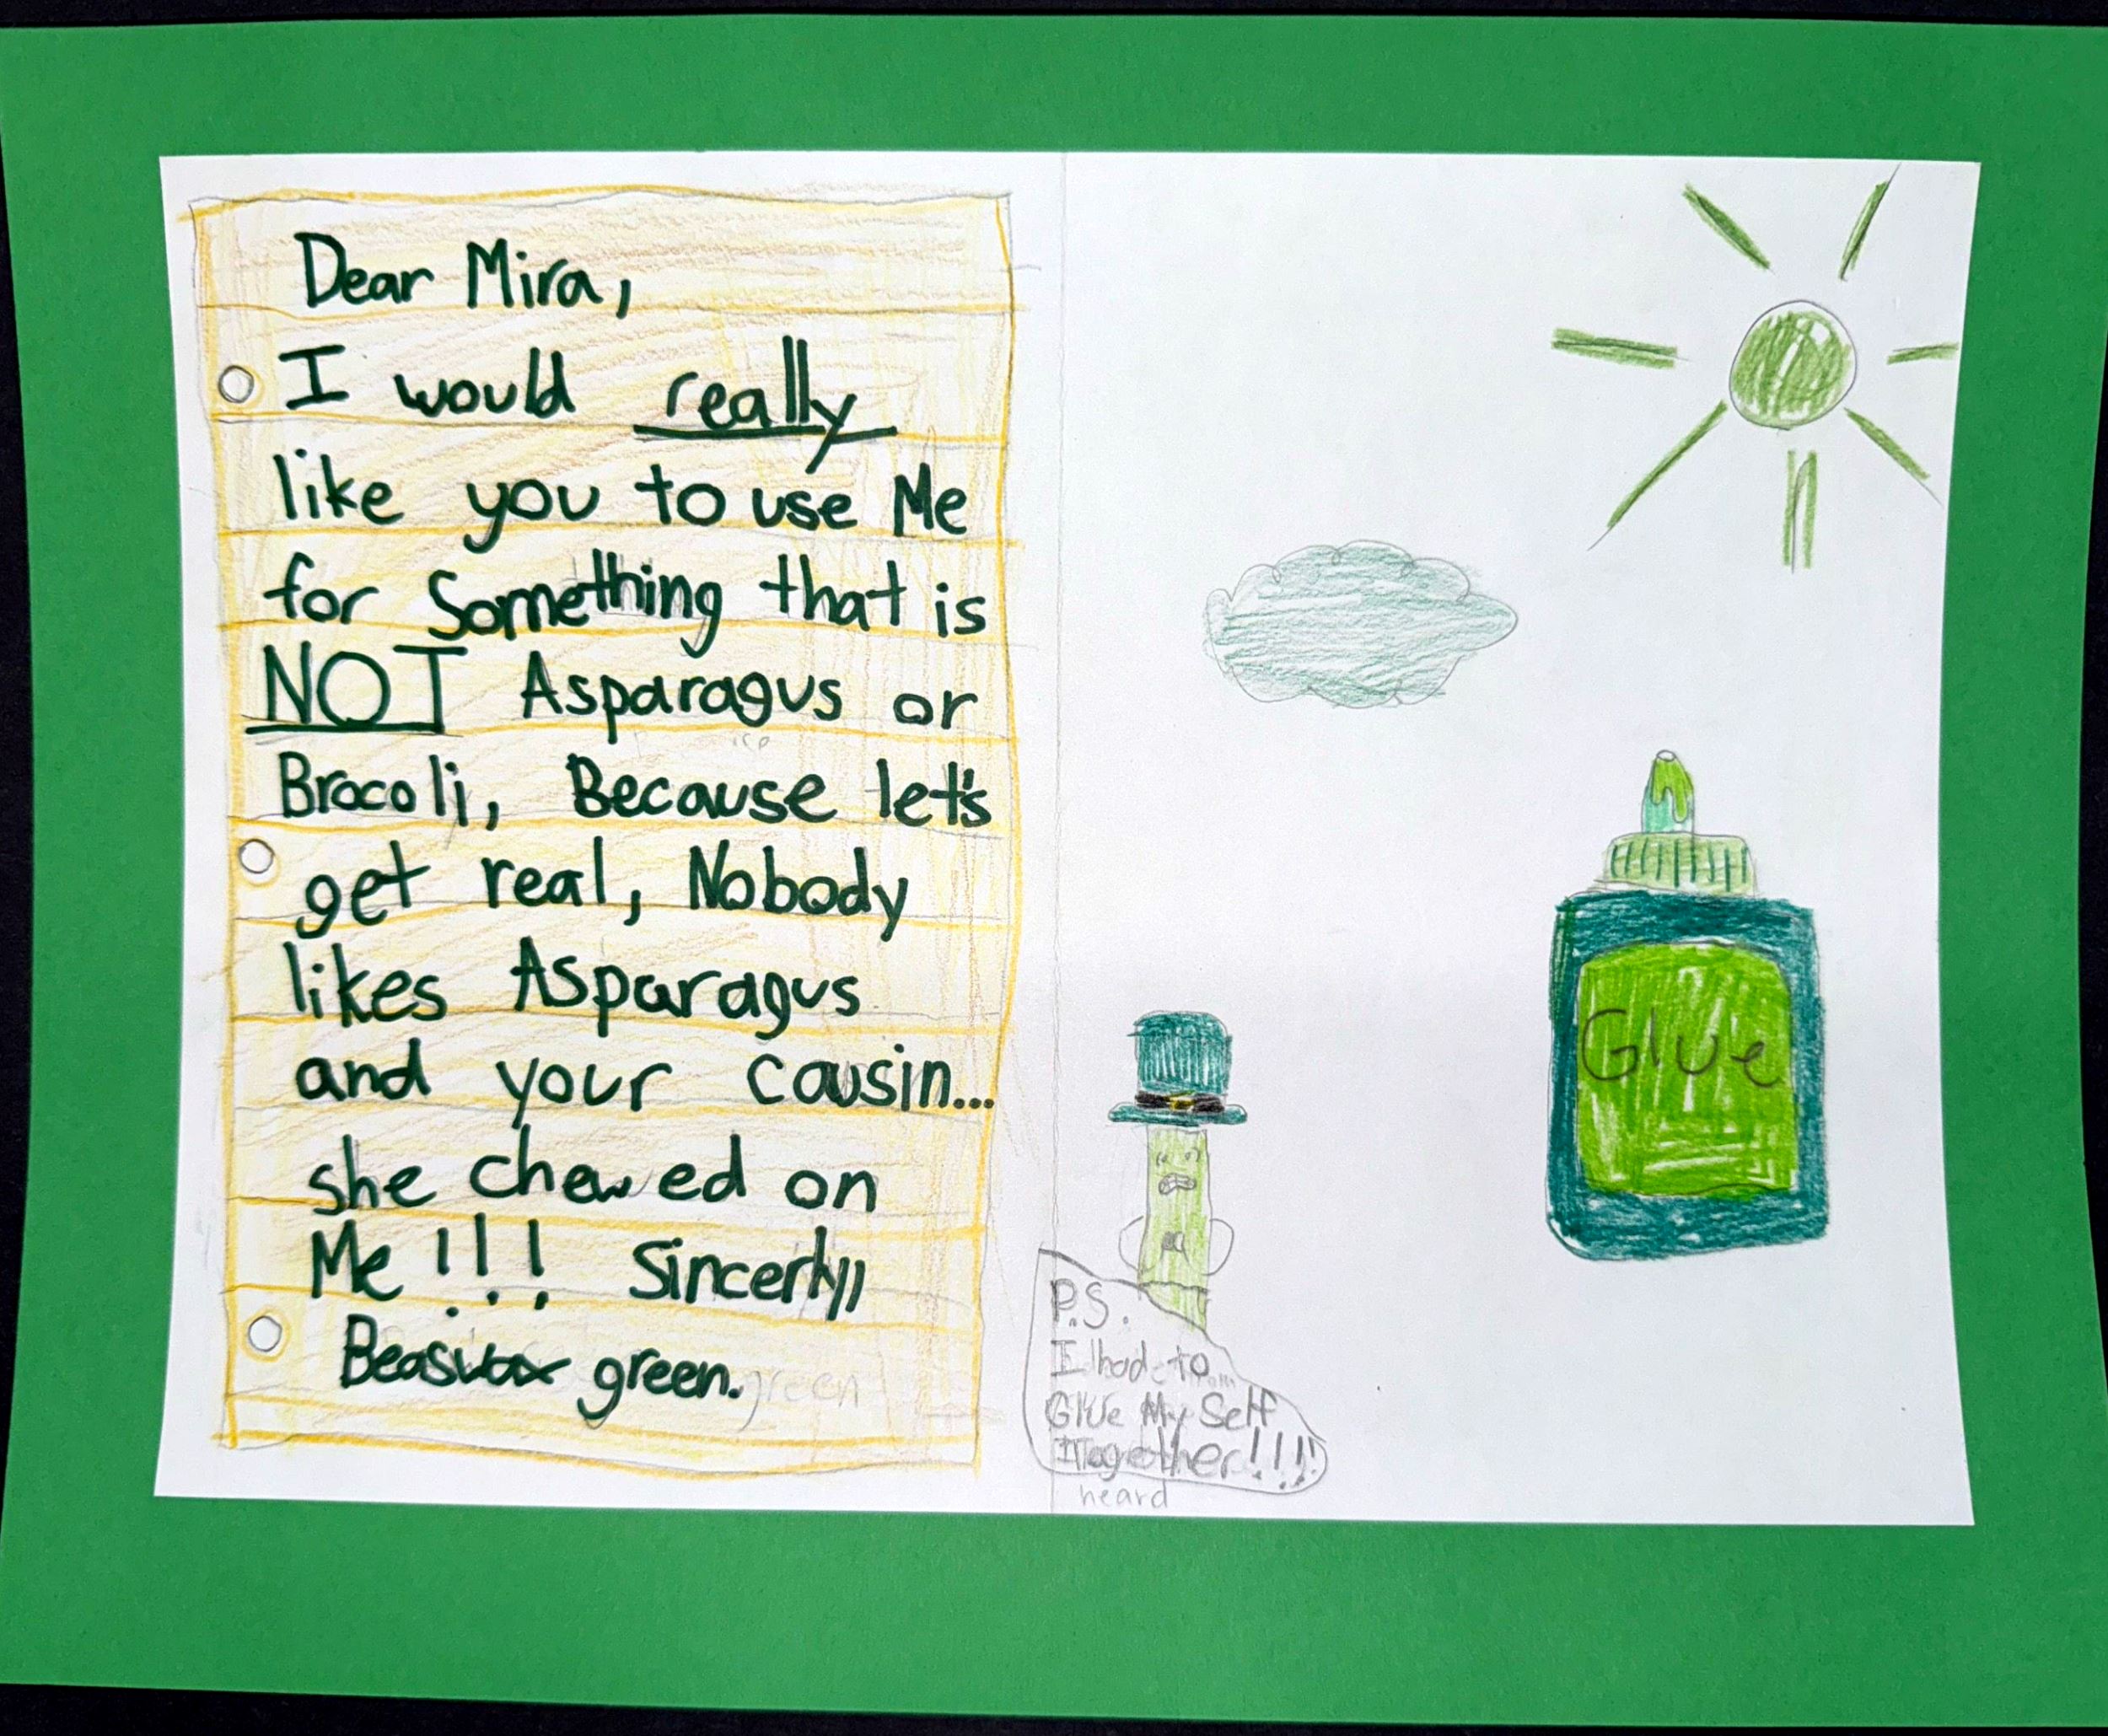 Dear Mira,
I would really
like you to use Me
for Something that is
NOT Asparagus or
Brocoli, Because let's
get real, Nobody
likes Asparagus
and your causin...
she chewed on
Me!!! Sincerly,
Beaswax green. green
Glue
P.S.
I had to
Glue My Self
Together!!!!
heard